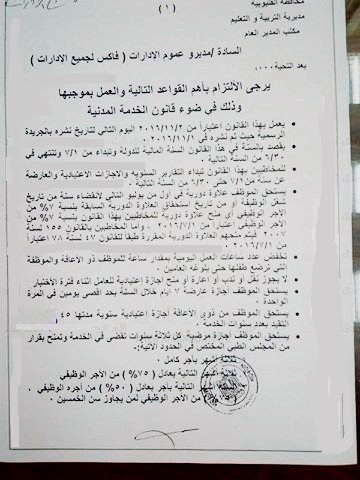 محافظة القليوبية
مديرية التربية و التعليم
مكتب المدير العام
( ١ )
السادة /مديرو عموم الادارات ( فاكس لجميع الادارات )
بعد التحية ....
يرجى الألتزام بأهم القواعد التالية والعمل بموجبها
وذلك في ضوء قانون الخدمة المدنية
يعمل بهذا القانون إعتباراً من ٢٠١٦/١١/٢ اليوم التالي لتاريخ نشره بالجريدة
الرسمية حيث تم نشره في ٢٠١٦/١١/١ .
يقصد بالسنة في هذا القانون السنة المالية للدولة وتبداء من ٧/١ وتنتهي في
٦/٣٠ من السنة التالية .
تبداء للمخاطبين بهذا القانون التقارير السنويه والاجازات الاعتيادية والعارضة
عن سنة من ٧/١ حتى ٦/٣٠ من السنة التالية .
يستحق الموظف علاوة دورية في اول من يوليو التالي لأنقضاء سنة من تاريخ
شغل الوظيفة أو من تاريخ إستحقاق العلاوة الدورية السابقة بنسبة ٧% من
الاجر الوظيفي أي منح علاوة دورية للمخاطبين بهذا القانون بنسبة ٧% من
الاجر الوظيفي إعتباراً من ٢٠١٦/٧/١ ، وأما المخاطبين بالقانون ١٥٥ لسنة
٢٠٠٧ فيتم منحهم العلاوة الدورية المقررة طبقا للقانون ٤٧ لسنة ٧٨ إعتباراً
من ٢٠١٦/٧/١ .
تخفض عدد ساعات العمل اليومية بمقدار ساعة للموظف ذو الأعاقة والموظفة
التي ترضع طفلها حتى بلوغه العامين .
لا يجوز نقل أو ندب أو اعارة أو منح اجازة إعتيادية للعامل اثناء فترة الأختبار
يستحق الموظف أجازة عارضة ٧ أيام خلال السنة بحد اقصى يومين في المرة
الواحدة .
يستحق الموظف من ذوى الأعاقة أجازة إعتيادية سنوية مدتها ٤٥
التقيد بعدد سنوات الخدمة .
يستحق الموظف أجازة مرضية كل ثلاثة سنوات تقضى في الخدمة وتمنح بقرار
من المجلس الطبي المختص في الحدود الاتية:-
ثلاثة اشهر بأجر كامل .
أشهر التالية بأجر يعادل ( ٧٥% ) من الاجر الوظيفي
أشهر التالية بأجر يعادل ( ٥٠% ) من أجره الوظيفي .
من الاجر الوظيفي لمن يجاوز سن الخمسين .